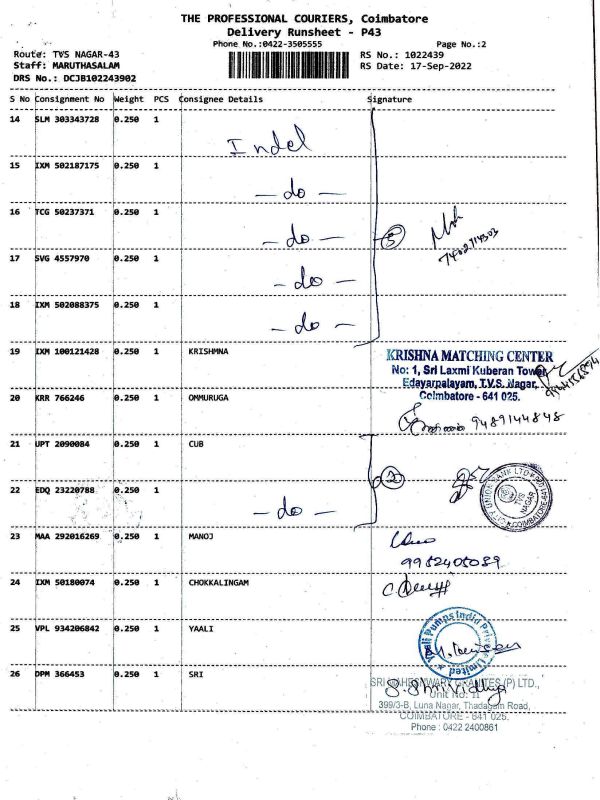 THE PROFESSIONAL COURIERS, Coimbatore
Delivery Runsheet - P43
Phone No.:0422-3505555 Page No.:2
Route: TVS NAGAR-43 RS No.: 1022439
Staff: MARUTHASALAM RS Date: 17-Sep-2022
DRS No.: DCJB102243902
S No Consignment No Weight PCS Consignee Details Signature
14 SLM 303343728 0.250 1 Indel
15 IXM 502187175 0.250 1 - do -
16 TCG 50237371 0.250 1 - do - 5
17 SVG 4557970 0.250 1 - do -
18 IXM 502088375 0.250 1 - do -
19 IXM 100121428 0.250 1 KRISHMNA KRISHNA MATCHING CENTER
No: 1, Sri Laxmi Kuberan Tower,
Edayarpalayam, T.V.S. Nagar,
Coimbatore - 641 025.
20 KRR 766246 0.250 1 OMMURUGA 9489144848
21 UPT 2090084 0.250 1 CUB
22 EDQ 23220788 0.250 1 - do - CITY UNION BANK LTD TVS NAGAR COIMBATORE
23 MAA 292016269 0.250 1 MANOJ
9952405089
24 IXM 50180074 0.250 1 CHOKKALINGAM
25 VPL 934206842 0.250 1 YAALI Yaali Pumps India Private Limited
26 DPM 366453 0.250 1 SRI SRI MAHESHWARY GRANITES (P) LTD.,
S. Shrividhya
Unit No: II
399/3-B, Luna Nagar, Thadagam Road,
COIMBATORE - 641 025.
Phone : 0422 2400861